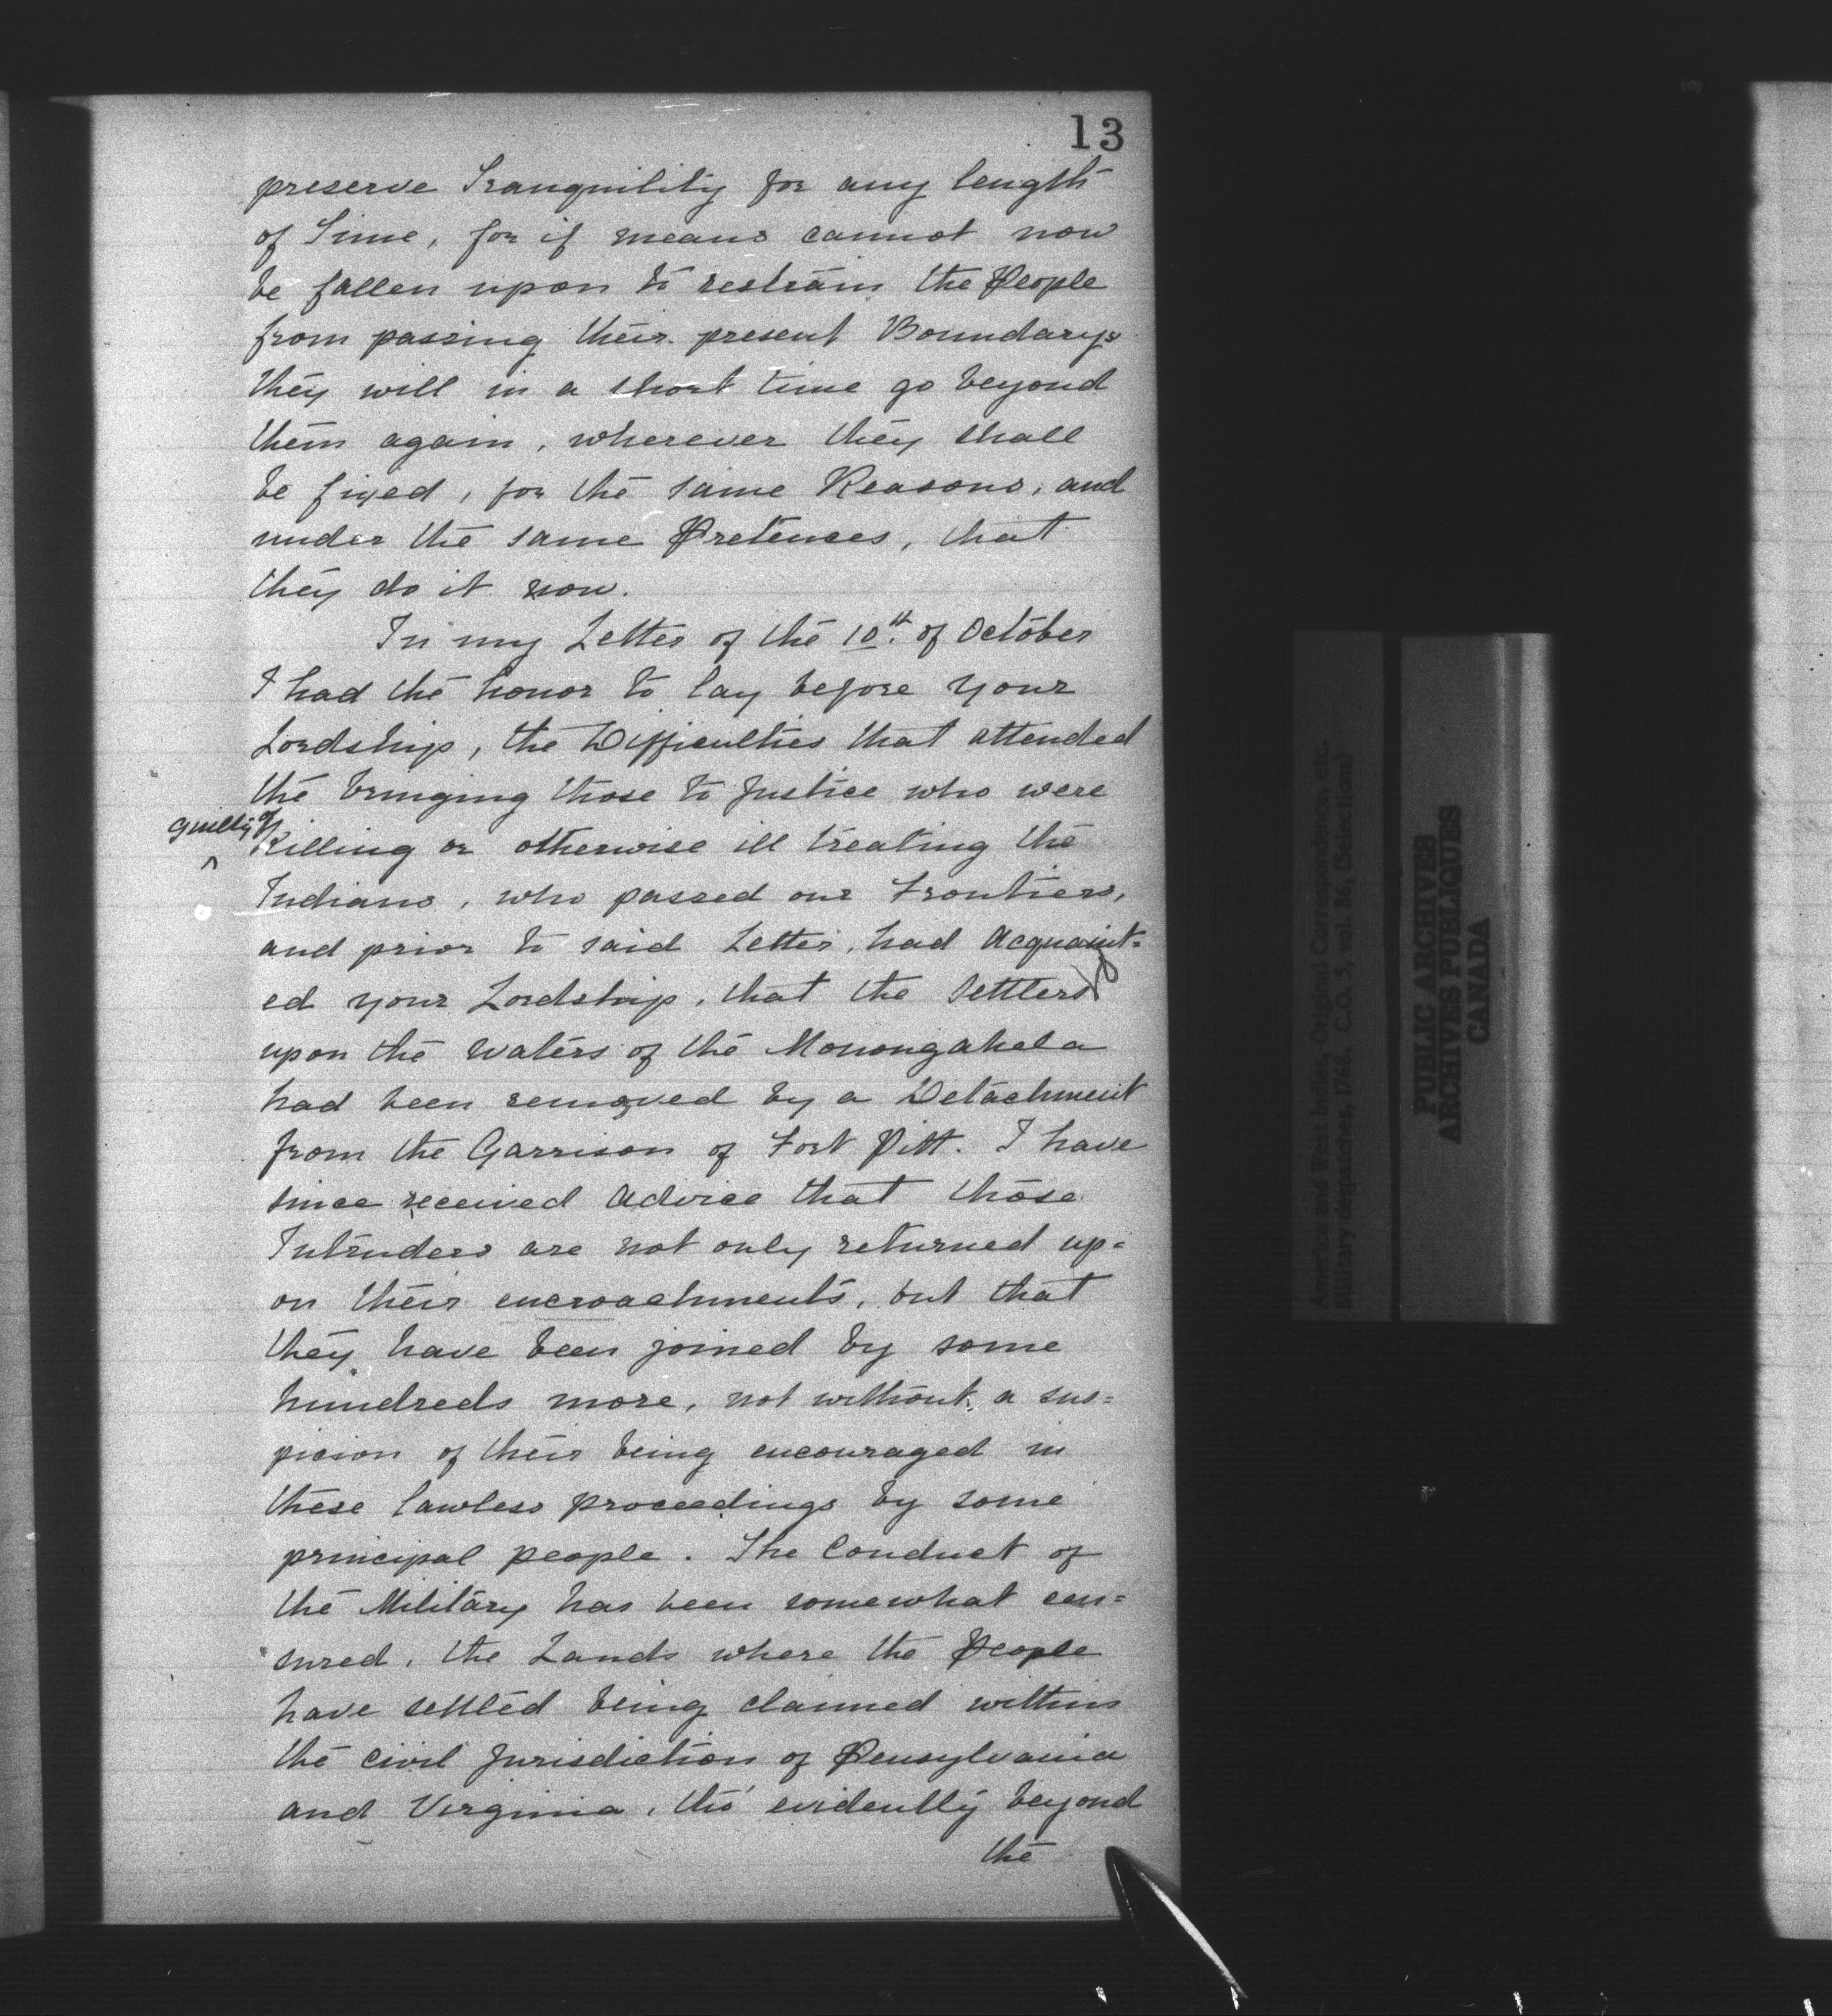 13
preserve Tranquility for any length
of Time, for if means cannot now
be fallen upon to restrain the People
from passing their present Boundarys
they will in a short time go beyond
them again, wherever they shall
be fixed, for the same Reasons, and
under the same Pretences, that
they do it now.
In my Letter of the 10th of October
I had the honor to lay before your
Lordship, the Difficulties that attended
the bringing those to Justice who were
guilty of
killing or otherwise ill treating the
Indians, who passed our Frontiers,
and prior to said Letter, had Acquaint=
ed your Lordship, that the Settlers
upon the Waters of the Monongahela
had been removed by a Detachment
from the Garrison of Fort Pitt. I have
since received Advice that those
Intruders are not only returned up=
on their encroachments, but that
they have been joined by some
hundreds more, not without a sus=
picion of their being encouraged in
these lawless proceedings by some
principal people. The Conduct of
the Military has been somewhat cen=
sured, the Lands where the People
have settled being claimed within
the civil Jurisdiction of Pensylvania
and Virginia, tho' evidently beyond
the
America and West Indies, Original Correspondence, etc.
Military despatches, 1768. C.O. 5, vol. 86, (Selections)
PUBLIC ARCHIVES
ARCHIVES PUBLIQUES
CANADA